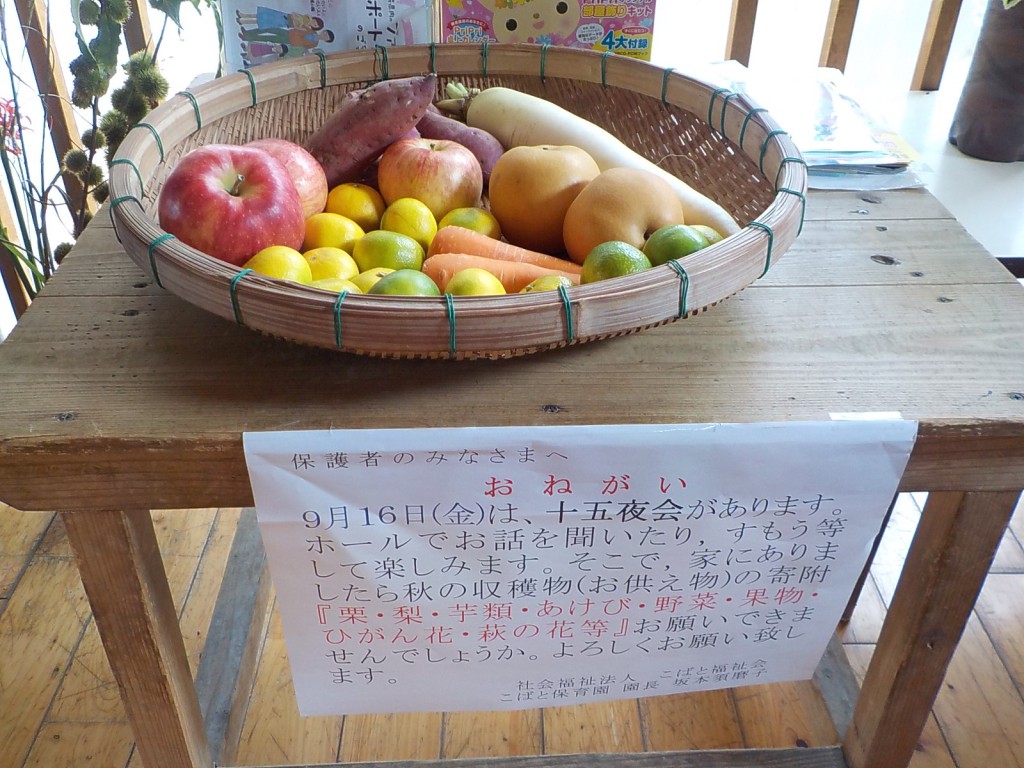 ポト
部屋飾りキット
4大付録
保護者のみなさまへ
おねがい
9月16日(金)は、十五夜会があります。
ホールでお話を聞いたり，すもう等
して楽しみます。そこで，家にありま
したら秋の収穫物(お供え物)の寄附
『栗・梨・芋類・あけび・野菜・果物・
ひがん花・萩の花等』お願いできま
せんでしょうか。よろしくお願い致し
ます。
社会福祉法人　こばと福祉会
こばと保育園　園長　坂本須磨子